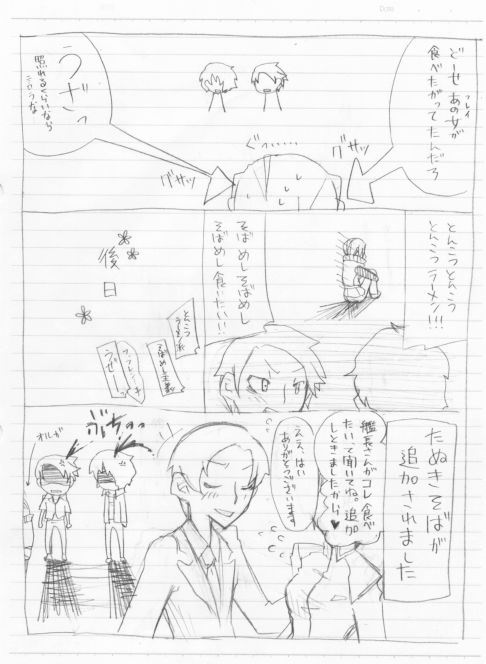 どーせあの女が
フレイ
食べたがってたんだろ
うざっ
照れるくらいなら
ニヤつくな
ぐっ……
グサッ
グサッ
とんこつとんこつ
とんこつラーメン!!!
そばめしそばめし
そばめし食いたい!!
後日
とんこつ
そばめし
うぜー
たぬきそばが
追加されました
艦長さんがコレ食べ
たいって聞いてね。追加
しときましたから♥
ええ、はい
ありがとうございます
オルガ